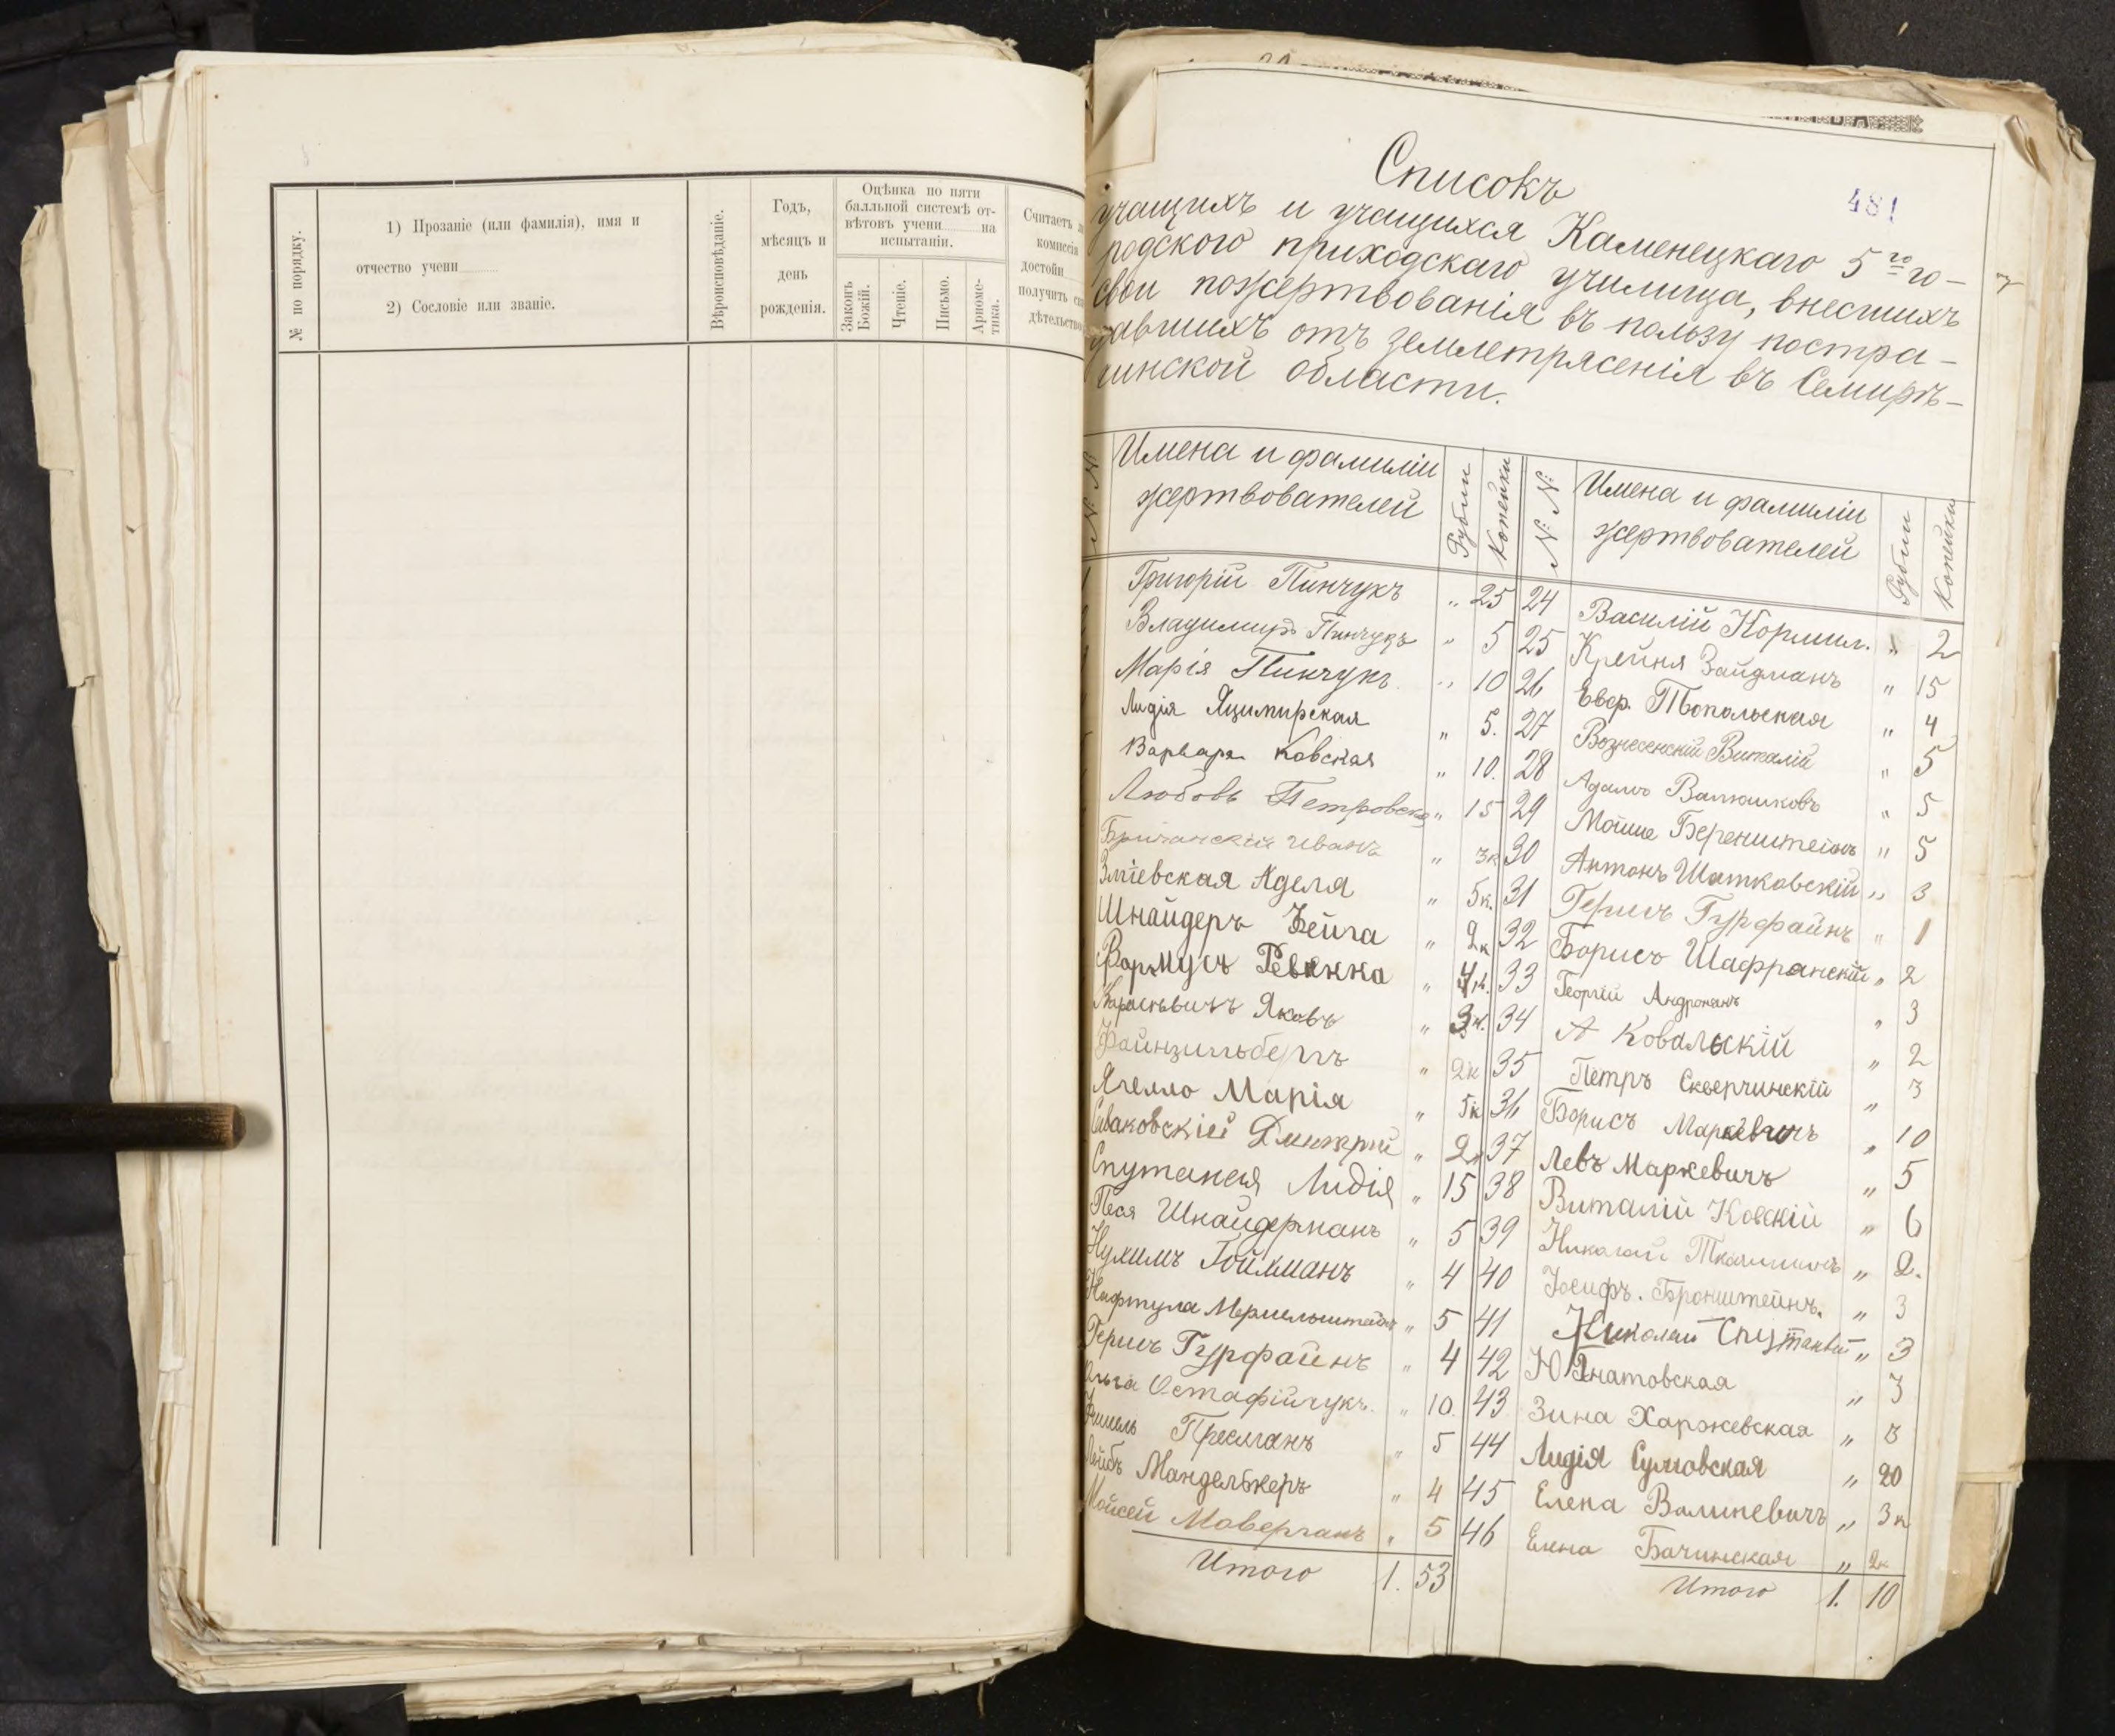 № по порядку.
1) Прозаніе (или фамилія), имя и
отчество учени
2) Сословіе или званіе.
Вѣроисповѣданіе.
Годъ,
мѣсяцъ и
день
рожденія.
Оцѣнка по пяти
балльной системѣ от-
вѣтовъ учени на
испытаніи.
Законъ
Божій.
Чтеніе.
Письмо.
Ариѳме-
тика.
Считаетъ
комиссія
достойн
получить
дѣтельство
481
Списокъ
учащихъ и учащихся Каменецкаго 5го го-
родского приходскаго училища, внесшихъ
свои пожертвованія въ пользу постра-
давшихъ отъ землетрясенія въ Семирѣ-
чинской области.
№ №
Имена и фамиліи
жертвователей
Рубли
Копейки
№ №
Имена и фамиліи
жертвователей
Рубли
Копейки
Григорій Пинчукъ " 25 24 Василій Кормил. " 2
Владимиръ Пинчукъ " 5 25 Крейня Зайдманъ " 15
Марія Пинчукъ " 10 26 Евфр. Топольская " 4
Лидія Яцимирская " 5. 27 Вознесенскій Виталій " 5
Варвара Ковская " 10. 28 Адамъ Валюшковъ " 5
Любовь Петровская " 15 29 Мойше Беренштейнъ " 5
Бричанскій Иванъ " 3к 30 Антонъ Шатковскій " 3
Зміевская Аделя " 5к. 31 Гершъ Гурфайнъ " 1
Шнайдеръ Фейга " 2к 32 Борисъ Шафранскій " 2
Вармусъ Ревекка " 4к. 33 Георгій Андроникъ " 3
Яковъ " 3к. 34 А Ковальскій " 2
Файнзильбергъ " 2к 35 Петръ Скверчинскій " 3
Ягелло Марія " 5к 36 Борисъ Маркевичъ " 10
Сиваковскій Дмитрій " 2к 37 Левъ Маркевичъ " 5
Спутаная Лидія " 15 38 Виталій Ковскій " 6
Песя Шнайдерманъ " 5 39 Николай " 2.
Нухимъ Гойхманъ " 4 40 Іосифъ. Бронштейнъ. " 3
Нафтула Мермельштейнъ " 5 41 Николай " 3
Гершъ Гурфайнъ " 4 42 Ю Гнатовская " 3
Ольга Остафійчукъ. " 10. 43 Зина Харжевская " 3
Пресманъ " 5 44 Лидія Сумовская " 20
Лейбъ Манделькеръ " 4 45 Елена Валикевичъ " 3к
Мойсей Маверманъ " 5 46 Елена Бачинская " 2к
Итого 1. 53 Итого 1. 10